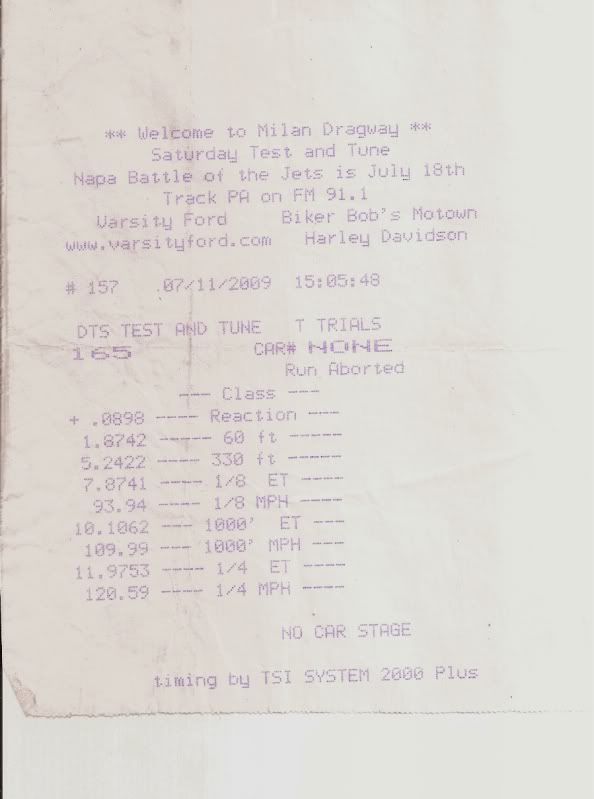 ** Welcome to Milan Dragway **
Saturday Test and Tune
Napa Battle of the Jets is July 18th
Track PA on FM 91.1
Varsity Ford Biker Bob's Motown
www.varsityford.com Harley Davidson
# 157 07/11/2009 15:05:48
DTS TEST AND TUNE T TRIALS
165 CAR# NONE
Run Aborted
--- Class ---
+ .0898 ---- Reaction ---
1.8742 ----- 60 ft -----
5.2422 ---- 330 ft -----
7.8741 ---- 1/8 ET ----
93.94 ---- 1/8 MPH ----
10.1062 --- 1000' ET ---
109.99 --- 1000' MPH ---
11.9753 ---- 1/4 ET ----
120.59 ---- 1/4 MPH ----
NO CAR STAGE
timing by TSI SYSTEM 2000 Plus